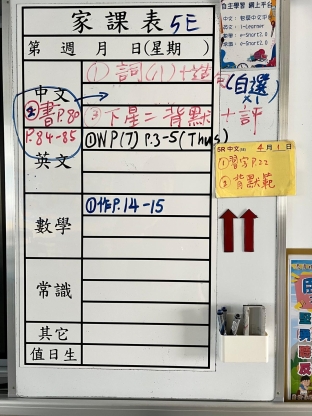 家課表 5E
第 週 月 日(星期 )
中文
① 詞(八)+
(自選)
②書P.80
P.84-85
③下星二 背默 + 評
英文
①WP(7) P.3-5 (Thurs)
數學
①作P.14-15
常識
其它
值日生
自主學習 網上平台
中文:
英文: i-Learner
數學: e-Smart2.0
常識: e-Smart2.0
5R 中文 4月1日
①習字P.22
② 背默範